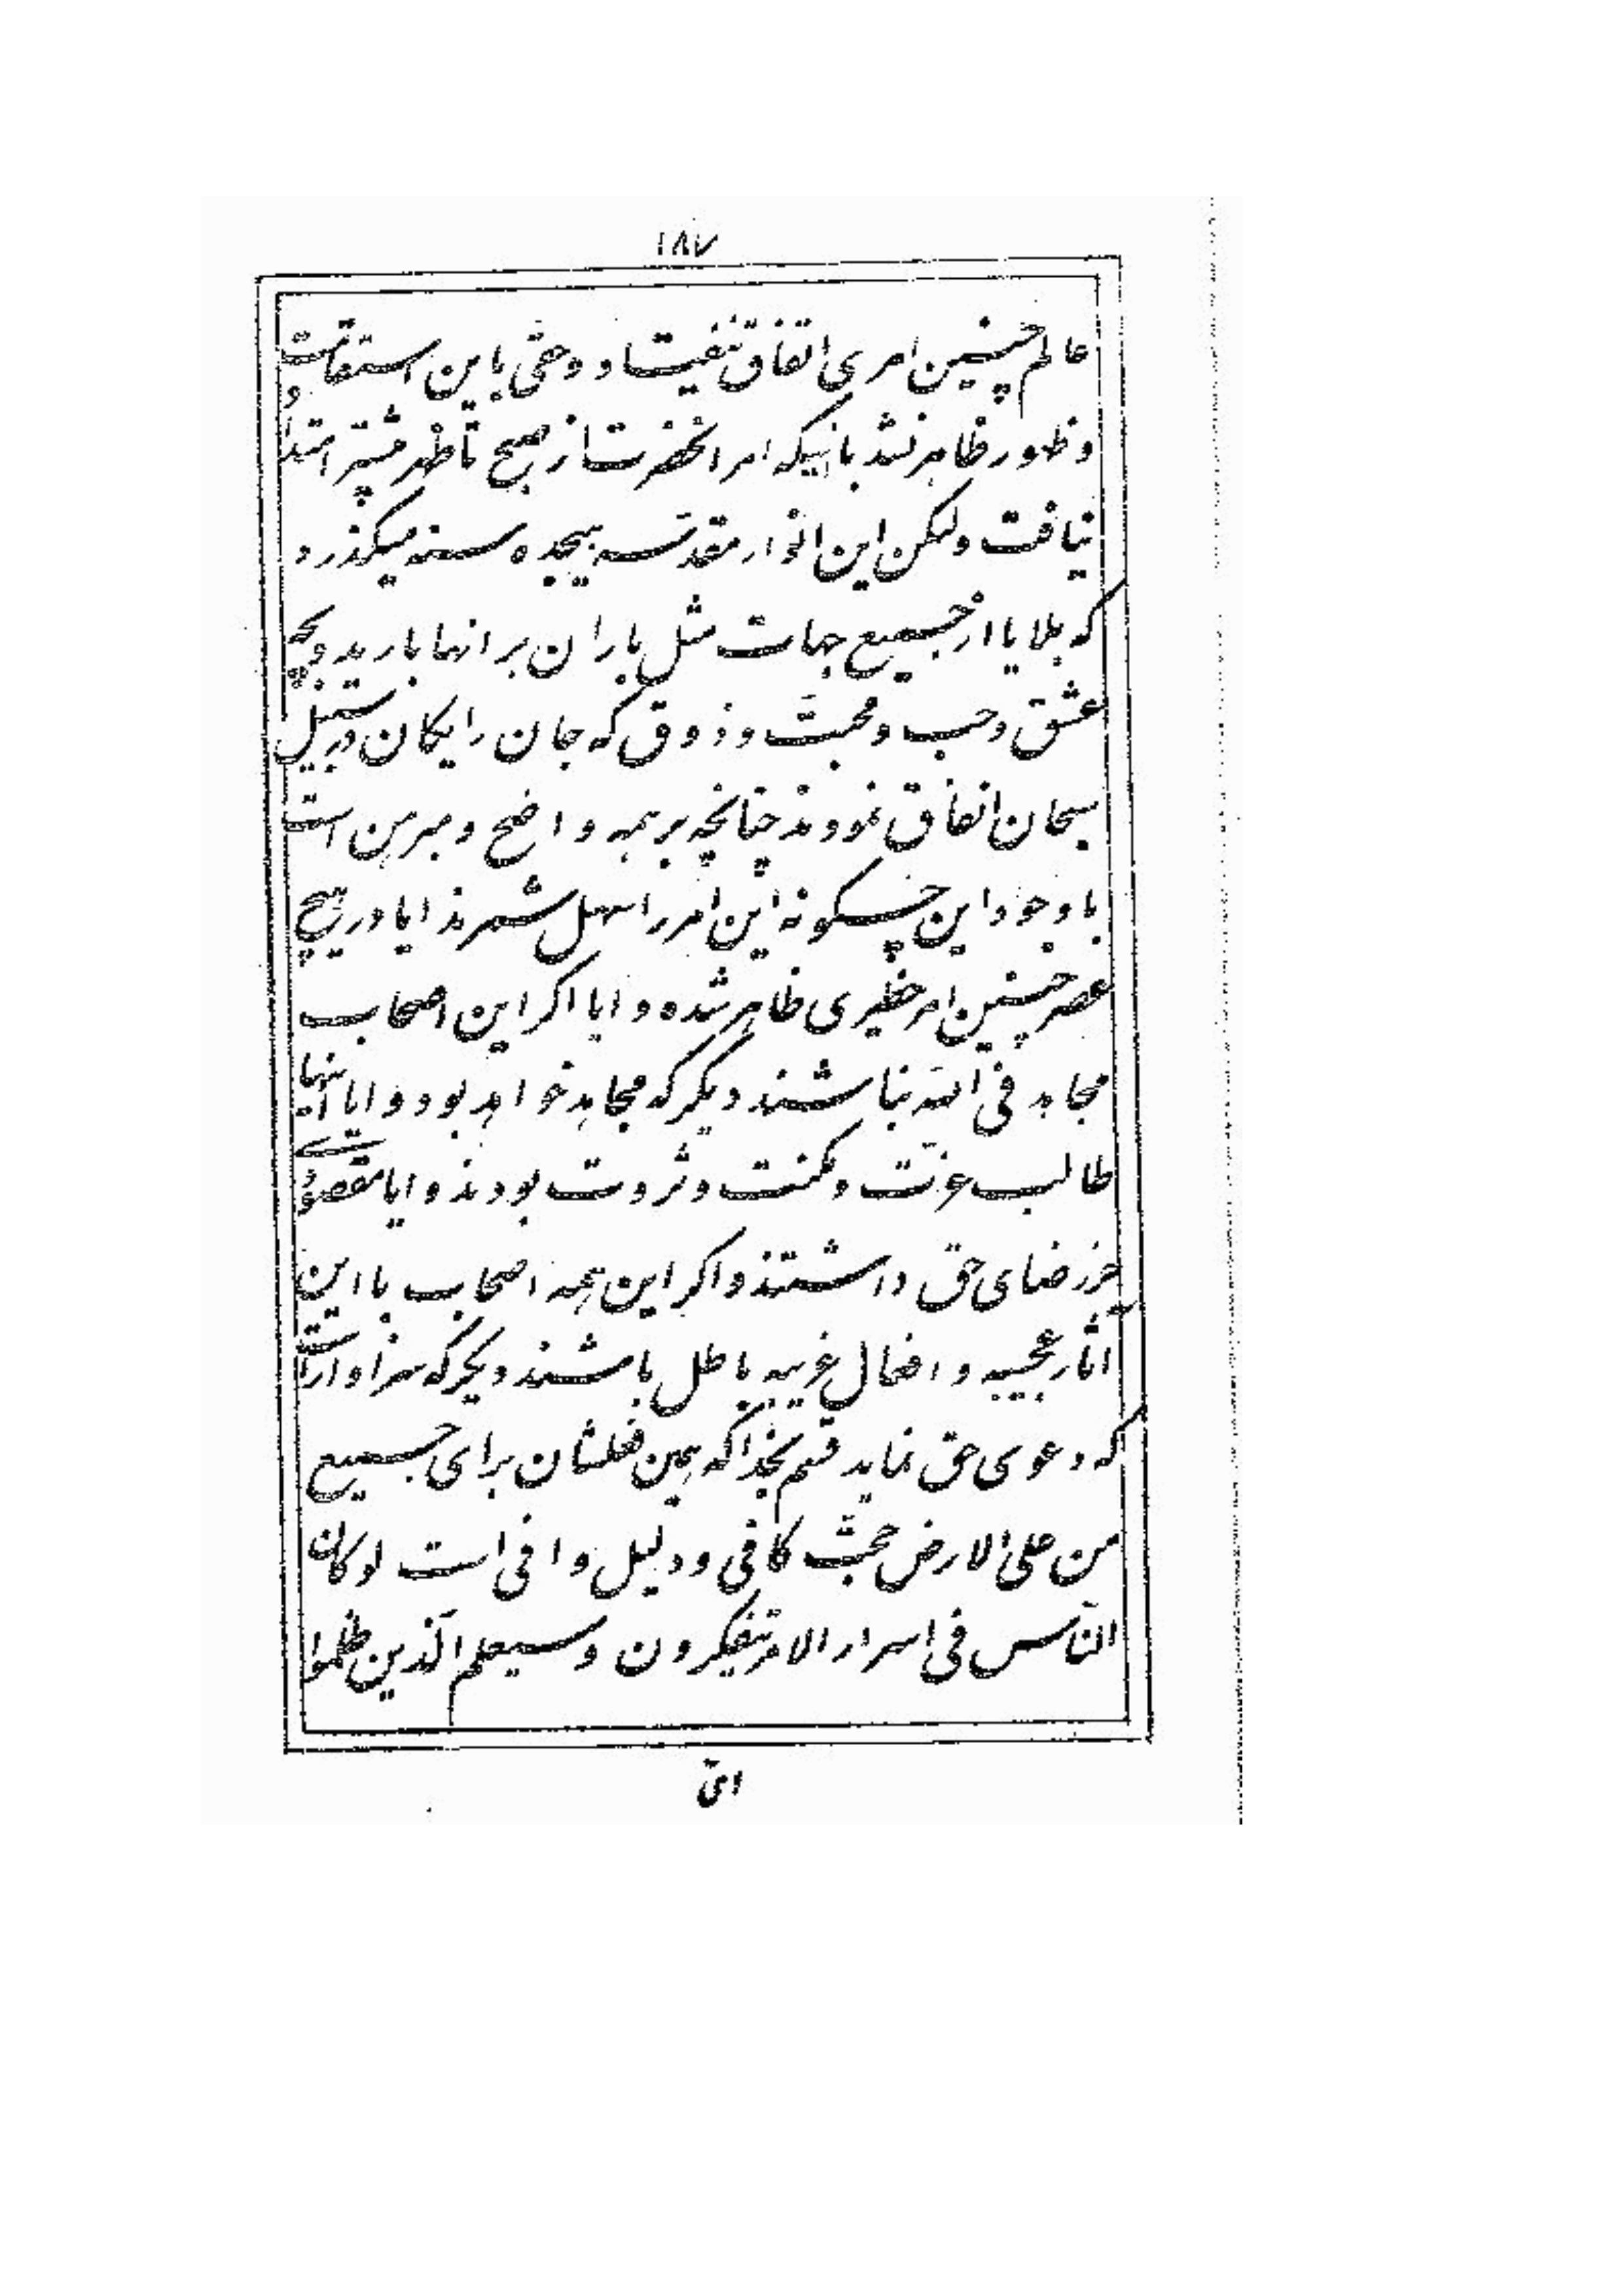 ۱۸۷
عالم چنین امری اتفاق نیفتاد و حقی باین استقامت
و ظهور ظاهر نشد بااینکه امر انحضرت از صبح تا ظهر بیشتر امتداد
نیافت ولیکن این انوار مقدسه هیجده سنه میگذرد
که بلایا از جمیع جهات مثل باران بر انها بارید و بچه
عشق و حب و محبت و ذوق که جان رایکان در سبیل
سبحان انفاق نمودند چنانچه بر همه واضح و مبرهن است
با وجود این چکونه این امر را سهل شمرند ایا در هیچ
عصر چنین امر خطیری ظاهر شده و ایا اکر این اصحاب
مجاهد فی الله نباشند دیکر که مجاهد خواهد بود و ایا اینها
طالب عزّت و مکنت و ثروت بودند و ایا مقصودی
جز رضای حق داشتند و اکر این همه اصحاب با این
اثار عجیبه و افعال غریبه باطل باشند دیکر که سزاوار است
که دعوی حق نماید قسم بخدا که همین فعلشان برای جمیع
من علی الارض حجّت کافی و دلیل وافی است لو کان
النّاس فی اسرار الامر یتفکرون و سیعلم الّذین ظلموا
ایّ